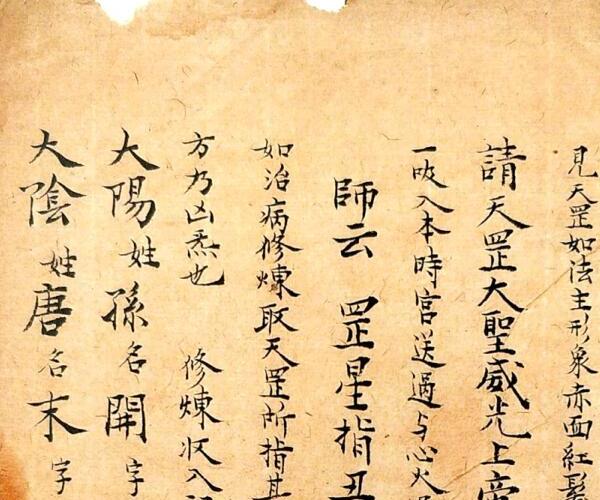 見天罡如法主形象赤面紅髮
請天罡大聖威光上帝
一吸入本時宮送過与心火
師云 罡星指丑
如治病修煉取天罡所指其
方乃凶炁也 修煉収入
大陽姓孫名開字
大陰姓唐名末字